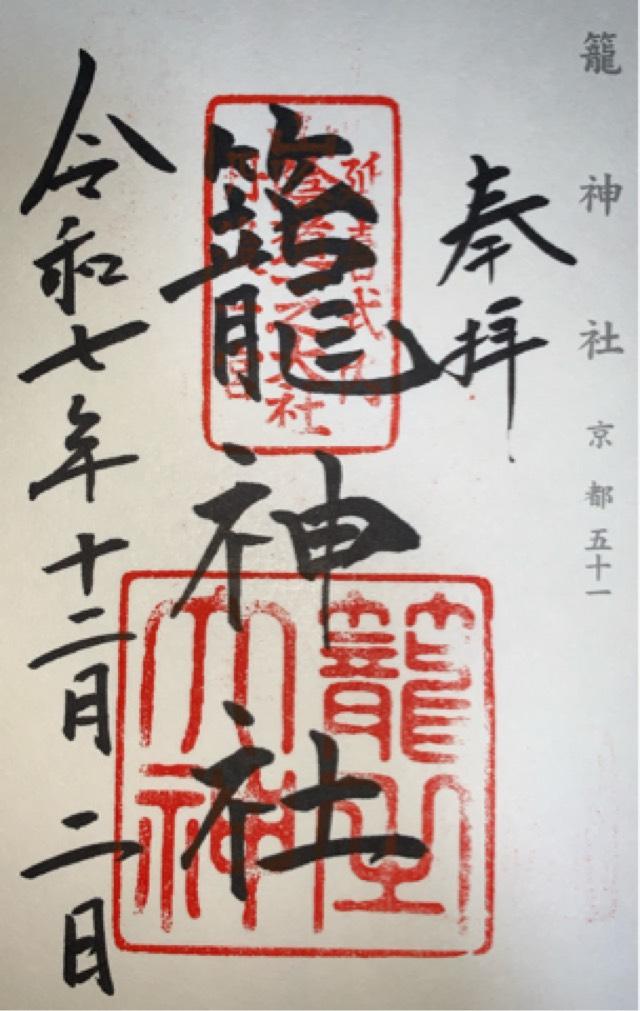 籠神社 京都五十一
奉拝
延喜式内
籠神社
籠之大神
令和七年十二月二日